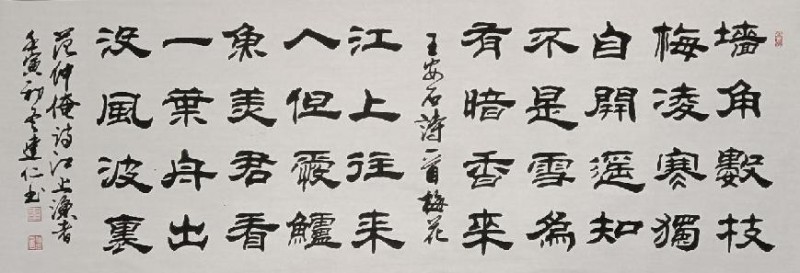 墻角數枝
梅凌寒獨
自開遥知
不是雪爲
有暗香来
王安石詩一首梅花
江上往来
人但愛鱸
魚美君看
一葉舟出
没風波裏
范仲俺诗江上漁者
壬寅初冬仁书